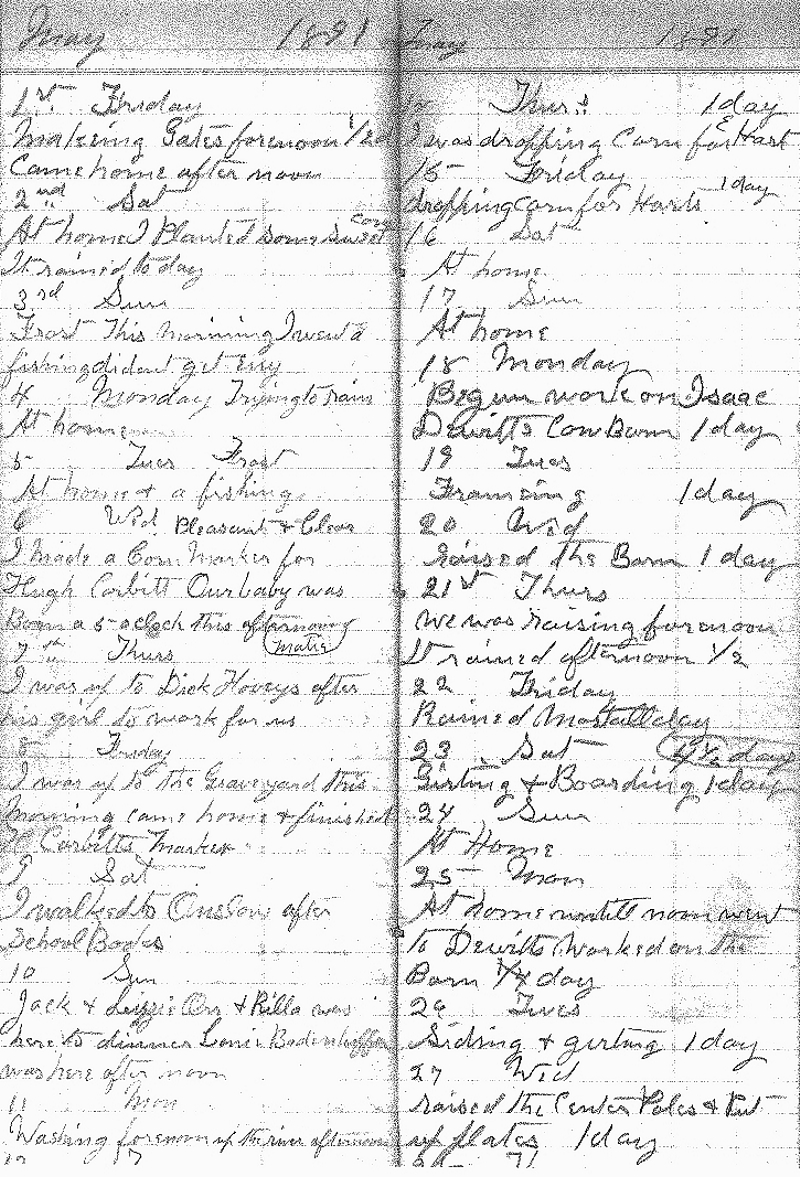 May 1891
1st Friday
Makeing Gates forenoon 1/2 d
Came home after noon
2nd Sat
At home I Planted some sweet corn
It rained to day
3rd Sun
Frost This morning I went a
fishing didant get eny
4 Monday Trying to rain
At home
5 Tues Frost
At home & a fishing
6 Wed Pleasant & Clear
I made a Corn Marker for
Hugh Corbitt Our baby was
Born a 5 oclock this afternoon
Matie
7th Thurs
I was up to Dick Hoveys after
his girl to work for us
8 Friday
I was up to the Graveyard this
Morning came home & finished
H Corbitts Marker
9 Sat
I walked to Onslow after
School Books
10 Sun
Jack & Lizzie Orr & Rilla was
here to dinner
was here after noon
11 Mon
Washing forenoon up the river afternoon
May 1891
Thurs 1 day
I was dropping Corn for E Hart
15 Friday
dropping corn for Harts 1 day
16 Sat
At home
17 Sun
At home
18 Monday
Begun work on Isaac
Dewitts Cow Barn 1 day
19 Tues
Framing 1 day
20 Wed
raised the Barn 1 day
21st Thurs
We was raising forenoon
It rained afternoon 1/2
22 Friday
Rained Most all day
23 Sat 4 1/2 day
Girting & Boarding 1 day
24 Sun
At Home
25 Mon
At home untill noon went
to Dewitts Worked on the
Barn 3/4 day
26 Tues
Sideing & girting 1 day
27 Wed
raised the Center Poles & Put
up plates 1 day